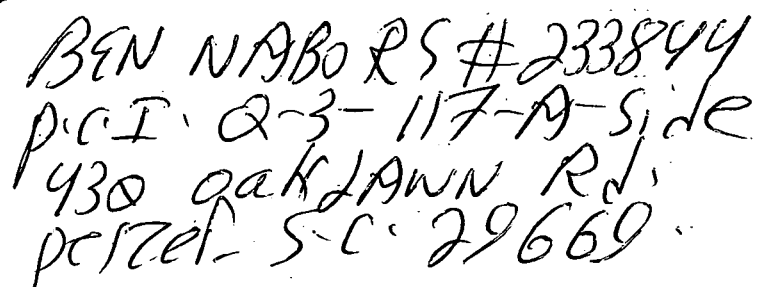 BEN NABORS #233844
P.C.I. Q-3-117-A-Side
430 oakLAWN Rd.
pelzer S.C. 29669.